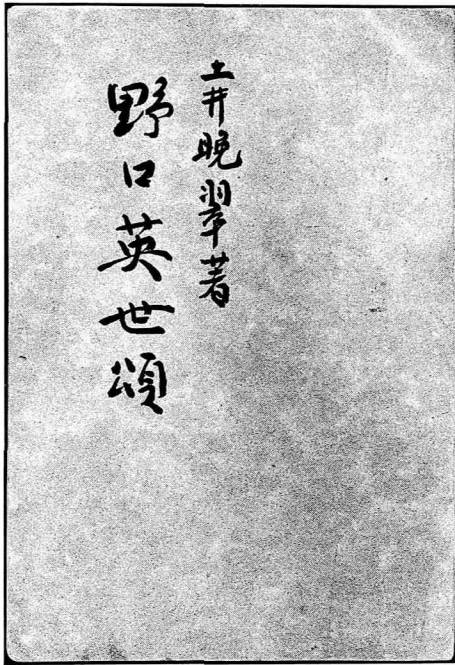 土井晩翠著
野口英世頌